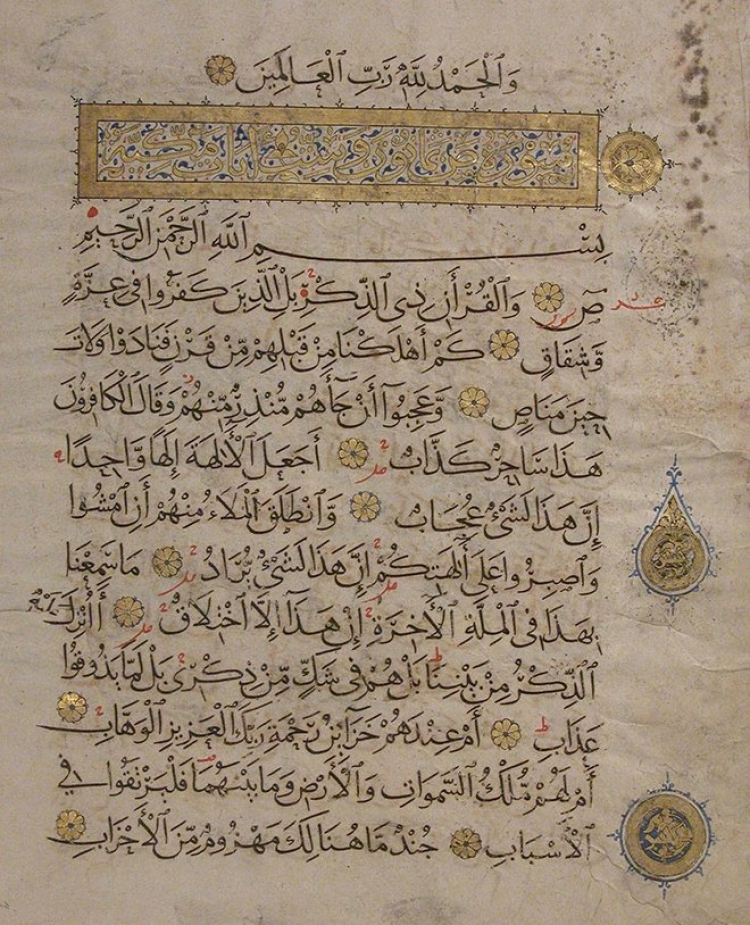 وَٱلْحَمْدُ لِلَّهِ رَبِّ ٱلْعَالَمِينَ
سورة ص ثمانون مكية
بِسْمِ ٱللَّهِ ٱلرَّحْمَٰنِ ٱلرَّحِيمِ
صٓ وَٱلْقُرْأٰنِ ذِى ٱلذِّكْرِ بَلِ ٱلَّذِينَ كَفَرُوا فِى عِزَّةٍ
وَّشِقَاقٍ كَمْ أَهْلَكْنَا مِنْ قَبْلِهِمْ مِّنْ قَرْنٍ فَنَادَوْا وَلَاتَ
حِينَ مَنَاصٍ وَعَجِبُوٓا أَنْ جَآءَهُمْ مُّنْذِرٌ مِّنْهُمْ وَقَالَ ٱلْكَافِرُونَ
هَذَا سَاحِرٌ كَذَّابٌ أَجَعَلَ ٱلْأٰلِهَةَ إِلَهًا وَّاحِدًا
إِنَّ هَذَا لَشَىْءٌ عُجَابٌ وَٱنْطَلَقَ ٱلْمَلَاءُ مِنْهُمْ أَنِ ٱمْشُوا
وَٱصْبِرُوا عَلَى أٰلِهَتِكُمْ إِنَّ هَذَا لَشَىْءٌ يُّرَادُ مَا سَمِعْنَا
بِهَذَا فِى ٱلْمِلَّةِ ٱلْأٰخِرَةِ إِنْ هَذَآ إِلَّا ٱخْتِلَاقٌ أَأُنْزِلَ عَلَيْهِ
ٱلذِّكْرُ مِنْ بَيْنِنَا بَلْ هُمْ فِى شَكٍّ مِّنْ ذِكْرِى بَلْ لَمَّا يَذُوقُوا
عَذَابِ أَمْ عِنْدَهُمْ خَزَآئِنُ رَحْمَةِ رَبِّكَ ٱلْعَزِيزِ ٱلْوَهَّابِ
أَمْ لَهُمْ مُّلْكُ ٱلسَّمَوَاتِ وَٱلْأَرْضِ وَمَا بَيْنَهُمَا فَلْيَرْتَقُوا فِى
ٱلْأَسْبَابِ جُنْدٌ مَّا هُنَالِكَ مَهْزُومٌ مِّنَ ٱلْأَحْزَابِ